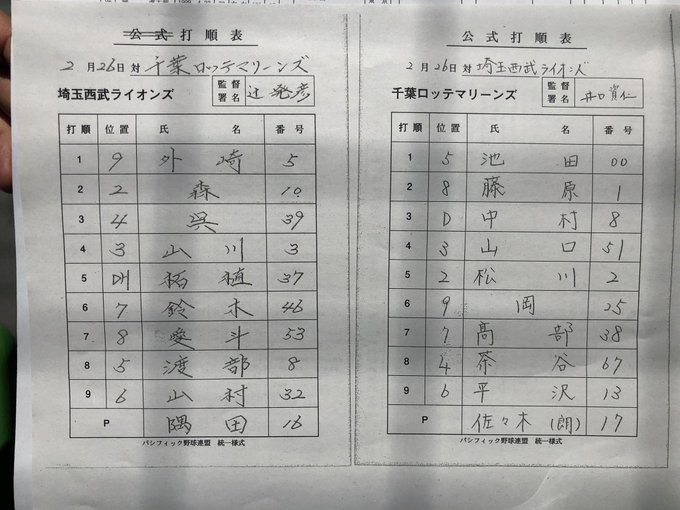 公式打順表
2月26日対千葉ロッテマリーンズ
埼玉西武ライオンズ 監督署名 辻発彦
打順 位置 氏名 番号
1 9 外崎 5
2 2 森 10
3 4 呉 39
4 3 山川 3
5 DH 柘植 37
6 7 鈴木 46
7 8 愛斗 53
8 5 渡部 8
9 6 山村 32
P 隅田 16
パシフィック野球連盟 統一様式
公式打順表
2月26日対埼玉西武ライオンズ
千葉ロッテマリーンズ 監督署名 井口資仁
打順 位置 氏名 番号
1 5 池田 00
2 8 藤原 1
3 D 中村 8
4 3 山口 51
5 2 松川 2
6 9 岡 25
7 7 髙部 38
8 4 茶谷 67
9 6 平沢 13
P 佐々木(朗) 17
パシフィック野球連盟 統一様式